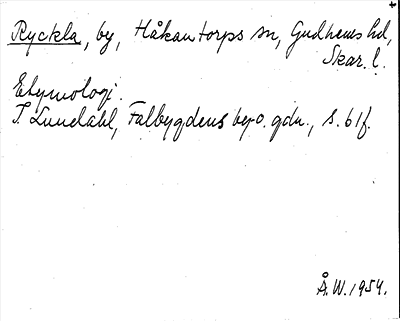 Ryckla, by, Håkantorps sn, Gudhems hd,
Skar. l.
Etymologi.
I. Lundahl, Falbygdens by- o. gdn., s. 61f.
Å.W. 1954.